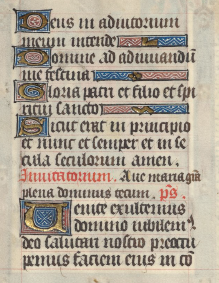 Deus in adiutorium
meum intende
Domine ad adiuuandū
me festina
Gloria patri et filio et spi
ritui sancto
Sicut erat in principio
et nunc et semper et in se
cula seculorum amen.
Inuitatorium. Aue maria grā
plena dominus tecum. ps.
Uenite exultemus
domino iubilem
deo salutari nostro preoccu
pemus faciem eius in cō